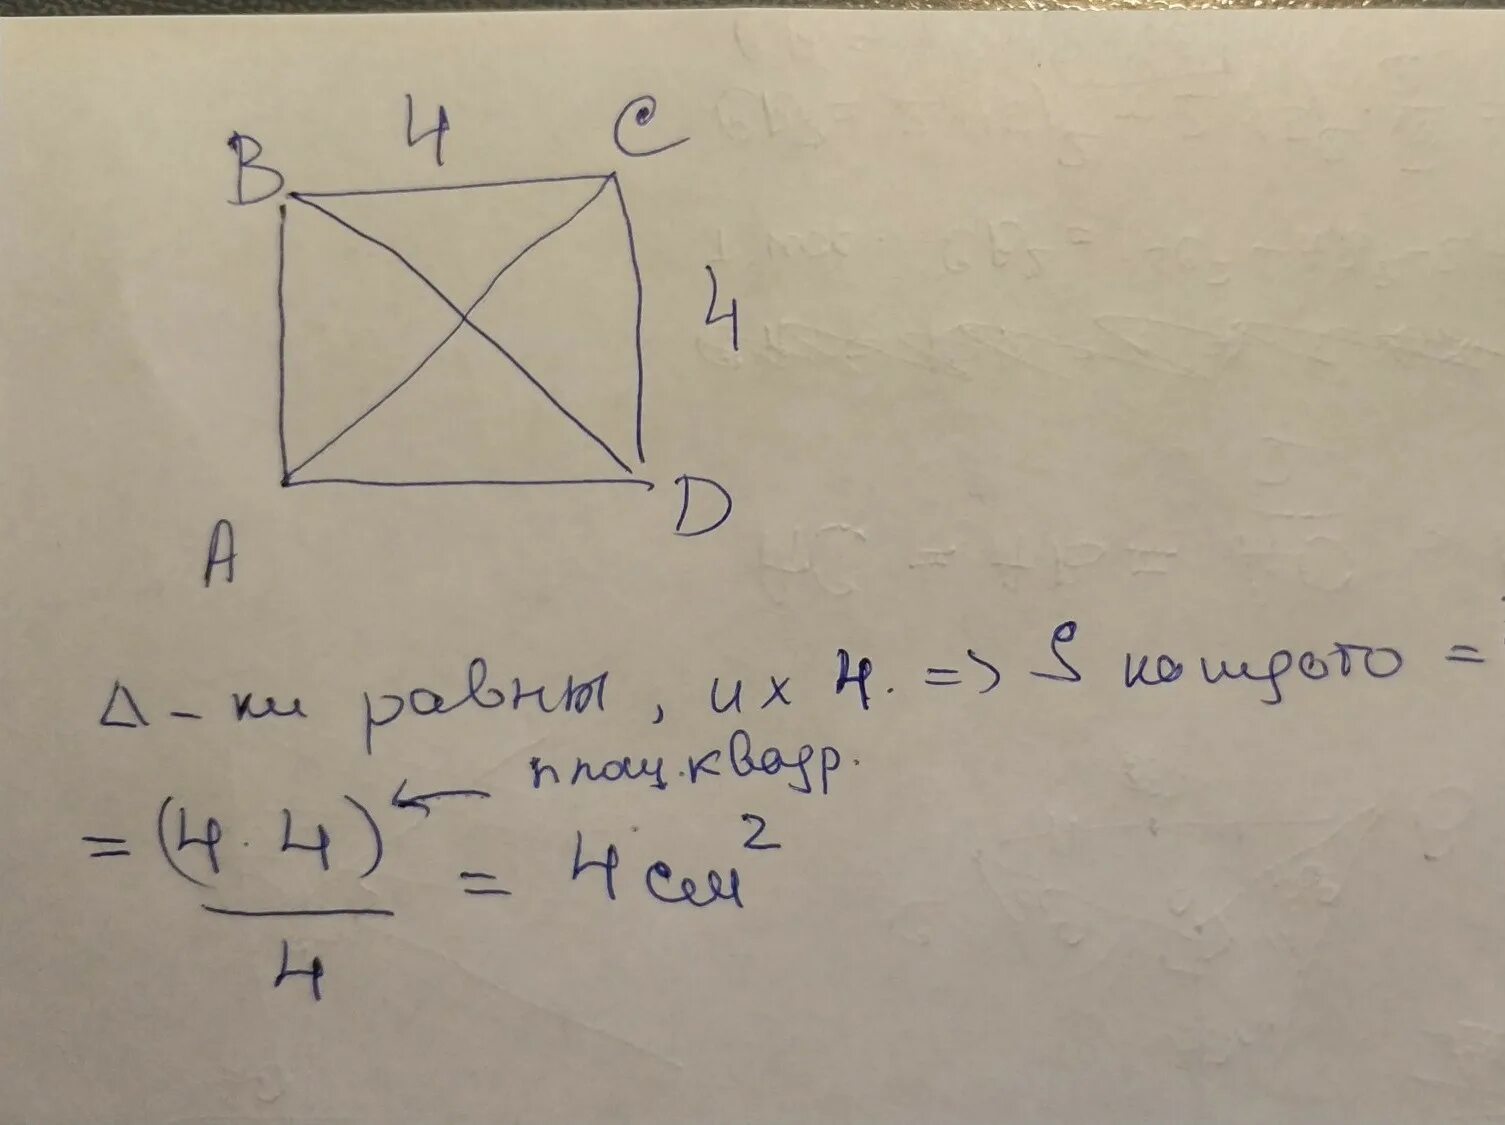 4
B
C
4
A
D
Δ-ки равны, их 4. => S каждого =
площ. квадр.
= (4·4)
4
= 4 см²